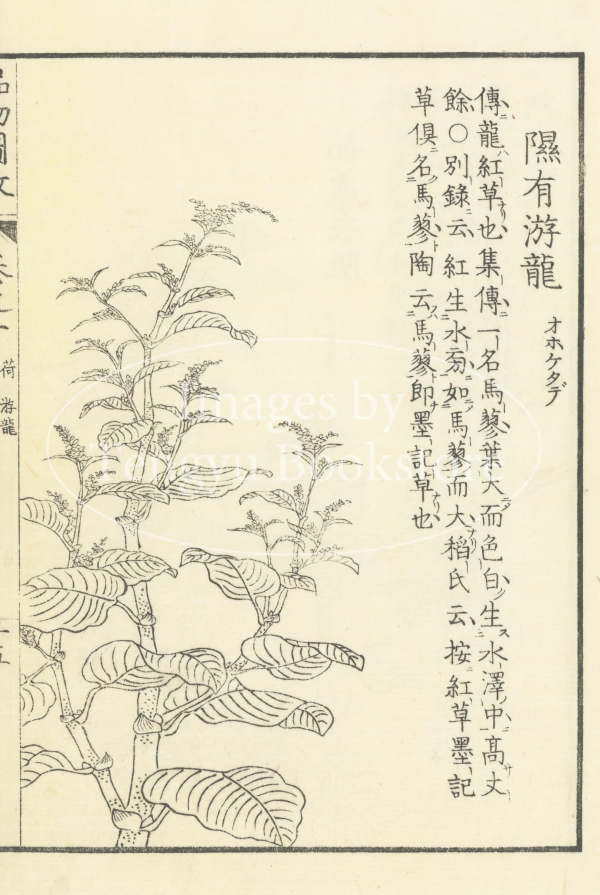 隰有游龍
オホケタデ
傳龍紅草也集傳一名馬蓼葉大而色白生水澤中高丈
餘○別錄云紅生水旁如馬蓼而大稻氏云按紅草墨記
草俱名馬蓼陶云馬蓼卽墨記草也
品物圖攷
荷 游龍
十五
Images by
Tengyu Bookstore